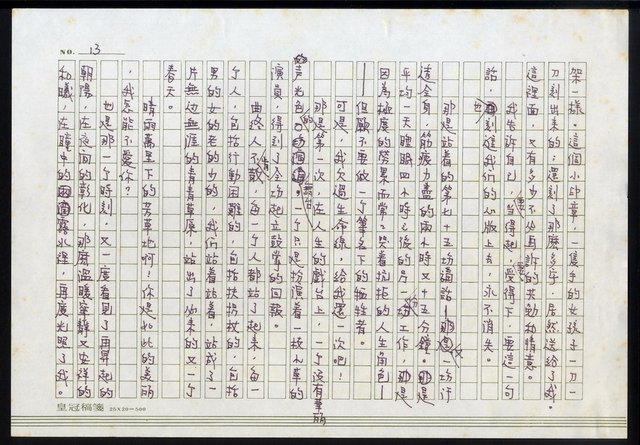 NO. 13
架一樣，這個小印章，一隻手的女孩子一刀一
刀刻出來的；還刻了那麼多字，居然送給了我。
這裡面，又有多少不必再訴的共勉和情意。
我告訴自己，當得起，受得下，要這一句
話，刻進我們的心版上去，永不消失。
那是站着的第七十五場講話
透全身，筋疲力盡的兩小時又十五分鐘。那是
平均一天睡眠四小時之後的另一份工作，那是
因為極度的勞累而常常哭着抗拒的人生角色—
—但願不要做一個筆名下的犧牲者。
可是，我欠過生命線，給我還一次吧！
那是第一次，在人生的戲台上，一個沒有華麗
聲光色的舞台，一個只是扮演着一枝小草的
演員，得到了全場起立鼓掌的回報。
曲終人不散，每一個人都站了起來，每一
個人，包括行動困難的，包括扶拐杖的，包括
男的女的老的少的，我們站着站着，站成了一
片無邊無涯的青青草原，站出了必來的又一個
春天。
晴雨萬里下的芳草地啊！你是如此的美麗
，我怎能不愛你？
也是那一個時刻，又一度看到了再昇起的
朝陽，在夜間的彰化，那麼溫暖寧靜又安詳的
和曦，在瞳中的露水裡，再度光照了我。
皇冠稿箋 25X20=500